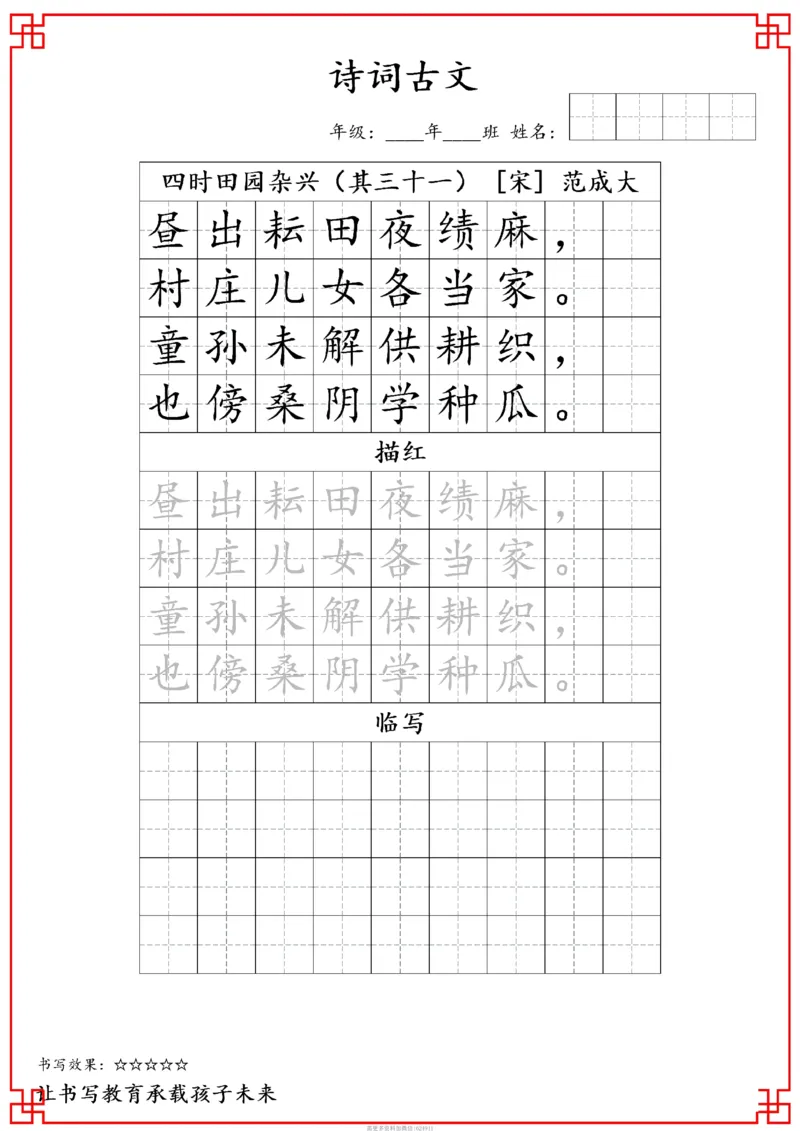 诗词古文
年级：____年____班 姓名：
四时田园杂兴（其三十一）［宋］范成大
昼出耘田夜绩麻，
村庄儿女各当家。
童孙未解供耕织，
也傍桑阴学种瓜。
描红
昼出耘田夜绩麻，
村庄儿女各当家。
童孙未解供耕织，
也傍桑阴学种瓜。
临写
书写效果：☆☆☆☆☆
让书写教育承载孩子未来